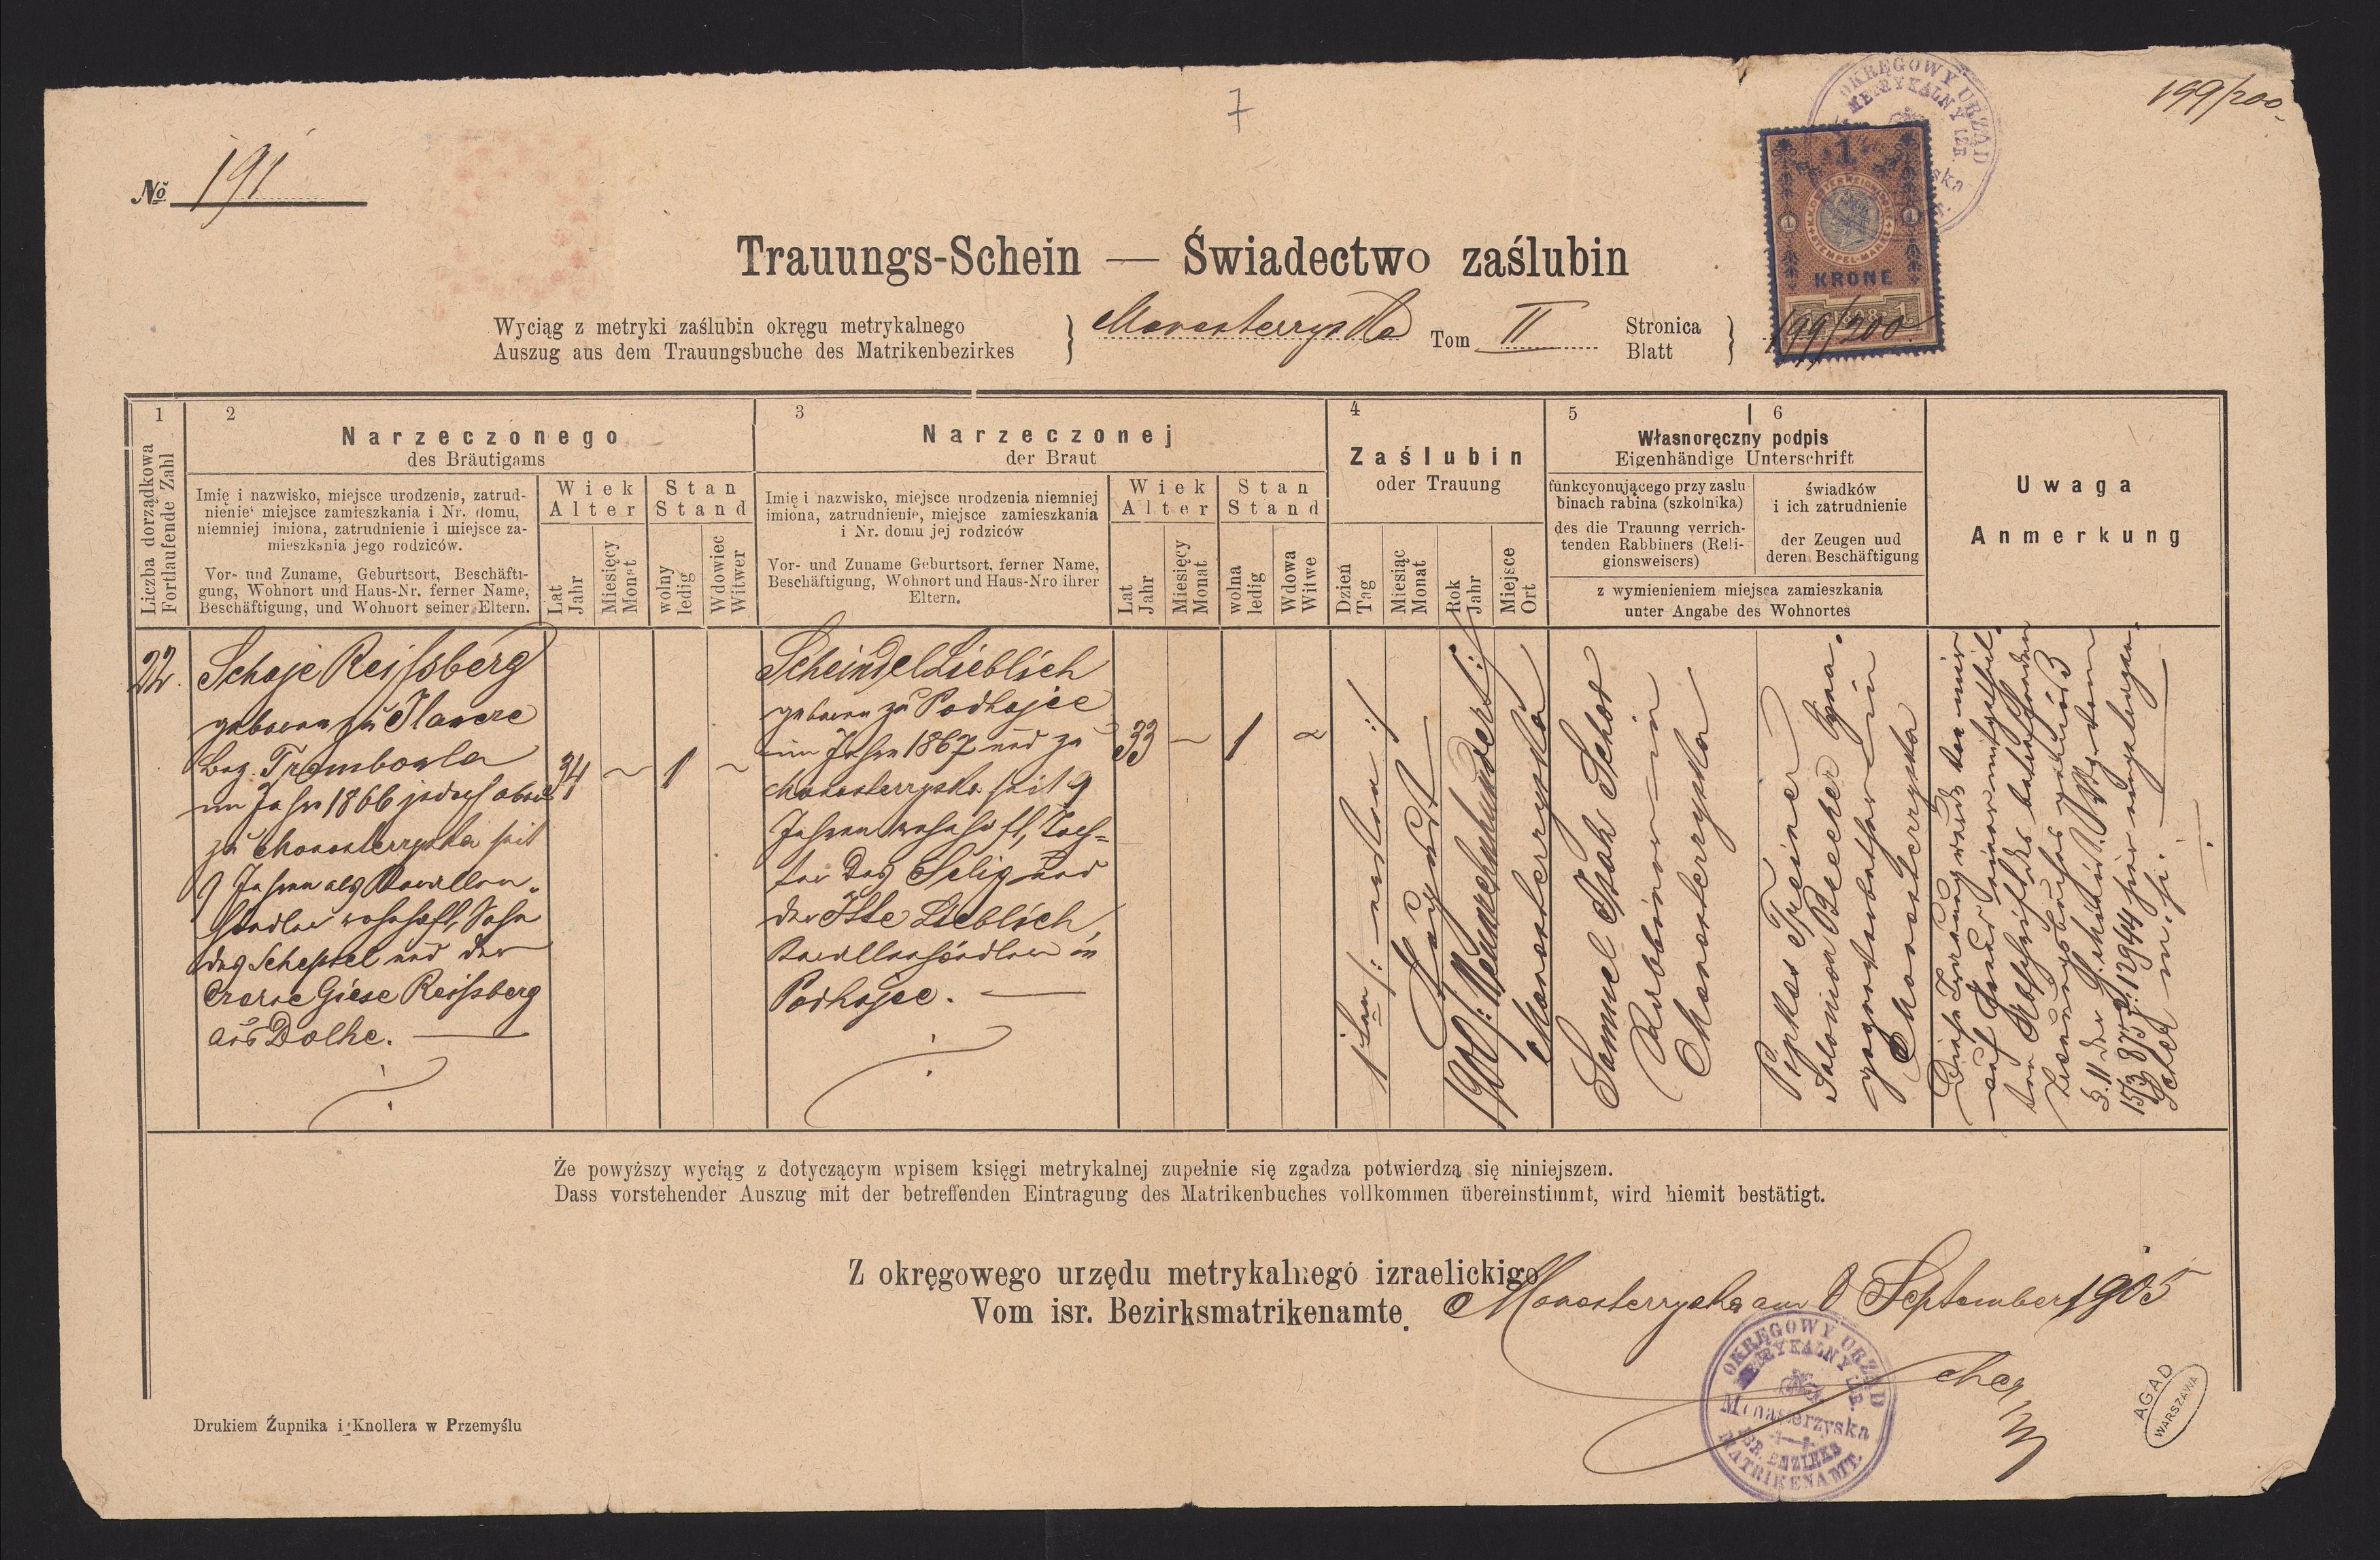 7
199/200
OKRĘGOWY URZĄD
METRYKALNY IZR.
№ 191
1
STEMPEL-MARKE
KRONE
1 1898 1
Trauungs-Schein — Świadectwo zaślubin
Wyciąg z metryki zaślubin okręgu metrykalnego
Auszug aus dem Trauungsbuche des Matrikenbezirkes
Monasterzyska Tom II Stronica
Blatt
199/200
1
Liczba dorządkowa
Fortlaufende Zahl
2
Narzeczonego
des Bräutigams
Imię i nazwisko, miejsce urodzenia, zatrud-
nienie' miejsce zamieszkania i Nr. domu,
niemniej imiona, zatrudnienie i miejsce za-
mieszkania jego rodziców.
Vor- und Zuname, Geburtsort, Beschäfti-
gung, Wohnort und Haus-Nr. ferner Name,
Beschäftigung, und Wohnort seiner Eltern.
Wiek
Alter
Lat
Jahr
Miesięcy
Monat
Stan
Stand
wolny
ledig
Wdowiec
Witwer
3
Narzeczonej
der Braut
Imię i nazwisko, miejsce urodzenia niemniej
imiona, zatrudnienie, miejsce zamieszkania
i Nr. domu jej rodziców
Vor- und Zuname Geburtsort, ferner Name,
Beschäftigung, Wohnort und Haus-Nro ihrer
Eltern.
Wiek
Alter
Lat
Jahr
Miesięcy
Monat
Stan
Stand
wolna
ledig
Wdowa
Witwe
4
Zaślubin
oder Trauung
Dzień
Tag
Miesiąc
Monat
Rok
Jahr
Miejsce
Ort
5
6
Własnoręczny podpis
Eigenhändige Unterschrift
funkcyonującego przy zaslu
binach rabina (szkolnika)
des die Trauung verrich-
tenden Rabbiners (Reli-
gionsweisers)
świadków
i ich zatrudnienie
der Zeugen uud
deren Beschäftigung
z wymienieniem miejsca zamieszkania
unter Angabe des Wohnortes
Uwaga
Anmerkung
22.
Schaje Reissberg
geboren zu Ilawcze
Bez. Trembowla
im Jahre 1866 jedoch
zu Monasterzyska seit
9 Jahren als
händler wohnhaft, Sohn
des Scheftel und der
Giese Reissberg
aus Dolhe.
34
1
Scheindel Lieblich
geboren zu Podhajce
im Jahre 1867 und zu
Monasterzyska seit 9
Jahren wohnhaft, Toch-
ter des Selig und
der Itte Lieblich,
händler in
Podhajce.
33
1
1ten /: ersten :/
August
1900 /: Neunzehnhundert :/
Monasterzyska
Samuel Isak Schor
Rabbiner in
Monasterzyska
Pinkas Treiner
Salomon Becker
in
Monasterzyska
Diese Trauung wurde
auf Grund
Trauungsbuches gemäß
§. 11 der
15/3 875 Z: 12944 hier eingetragen.
Że powyższy wyciąg z dotyczącym wpisem księgi metrykalnej zupełnie się zgadza potwierdzą się niniejszem.
Dass vorstehender Auszug mit der betreffenden Eintragung des Matrikenbuches vollkommen übereinstimmt, wird hiemit bestätigt.
Z okręgowego urzędu metrykalnego izraelickigo
Vom isr. Bezirksmatrikenamte.
Monasterzyska am 8 September 1905
OKRĘGOWY URZĄD
METRYKALNY IZR.
Monasterzyska
ISR. BEZIRKS
MATRIKENAMT.
Drukiem Żupnika i Knollera w Przemyślu
AGAD
WARSZAWA